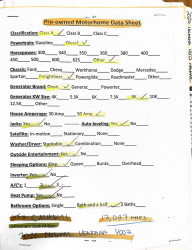 Pre-owned Motorhome Data Sheet
Classification: Class A ✓ Class B Class C
Powertrain: Gasoline Diesel ✓
Horsepower: 300 340 350 360 380 400
450 500 600 625 Other
Chassis: Ford Chevy Workhorse Dodge Mercedes
Spartan Freightliner ✓ Powerglide Roadmaster Other
Generator Brand: Onan ✓ Generac Powertec
Generator KW Size: 4K 5.5K 6K 7.5K 8K 10K
12.5K Other
House Amperage: 30 Amp 50 Amp ✓
Jacks: Yes ✓ No Auto leveling: Yes ✓ No
Satellite: In-motion Stationary None
Washer/Dryer: Stackable Combination None
Outside Entertainment: Yes ✓ No
Sleeping Options: King Queen Bunks Overhead
Inverter: Yes ✓ No
A/C's: 1 2 3
Heat Pump: Yes No
Bathroom Options: Single Bath and a half 2 Baths